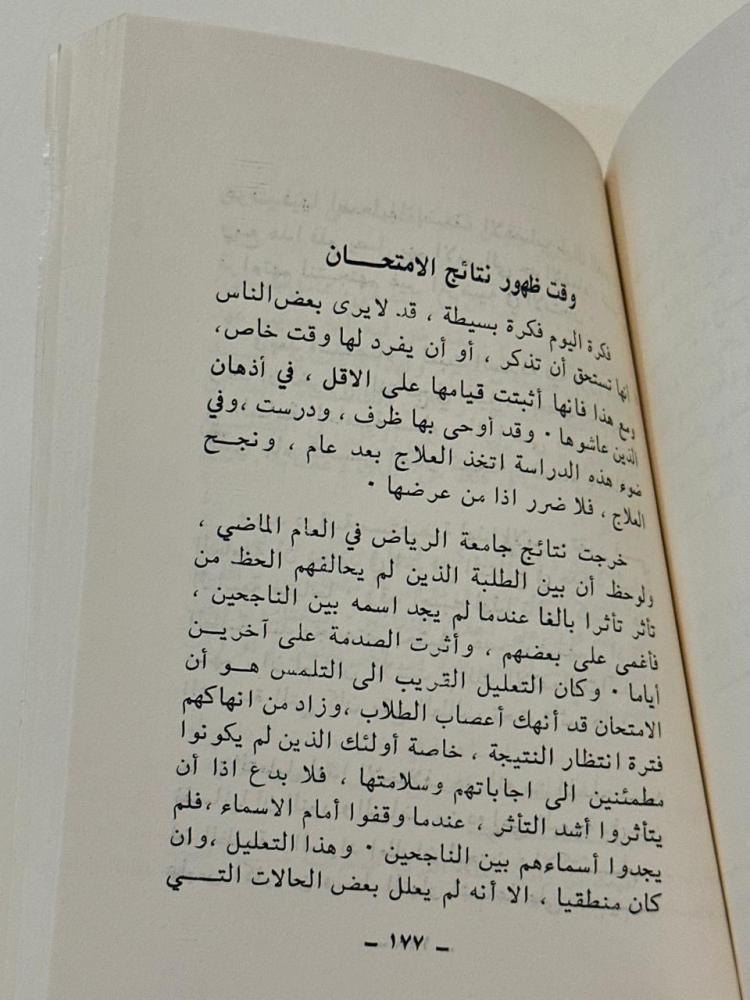 وقت ظهور نتائج الامتحـــان
فكرة اليوم فكرة بسيطة ، قد لايرى بعض الناس
انها تستحق أن تذكر ، أو أن يفرد لها وقت خاص،
ومع هذا فانها أثبتت قيامها على الاقل ، في أذهان
الذين عاشوها ٠ وقد أوحى بها ظرف ، ودرست ،وفي
ضوء هذه الدراسة اتخذ العلاج بعد عام ، ونجـــح
العلاج ، فلا ضرر اذا من عرضها ٠
خرجت نتائج جامعة الرياض في العام الماضي ،
ولوحظ أن بين الطلبة الذين لم يحالفهم الحظ من
تأثر تأثرا بالغا عندما لم يجد اسمه بين الناجحين ،
فأغمى على بعضهم ، وأثرت الصدمة على آخريــن
أياما ٠ وكان التعليل القريب الى التلمس هــو أن
الامتحان قد أنهك أعصاب الطلاب ،وزاد من انهاكهم
فترة انتظار النتيجة ، خاصة أولئك الذين لم يكونوا
مطمئنين الى اجاباتهم وسلامتها ، فلا بدع اذا أن
يتأثروا أشد التأثر ، عندما وقفوا أمام الاسماء ،فلم
يجدوا أسماءهم بين الناجحين ٠ وهذا التعليل ،وان
كان منطقيا ، الا أنه لم يعلل بعض الحالات التـــي
ـ ١٧٧ ـ